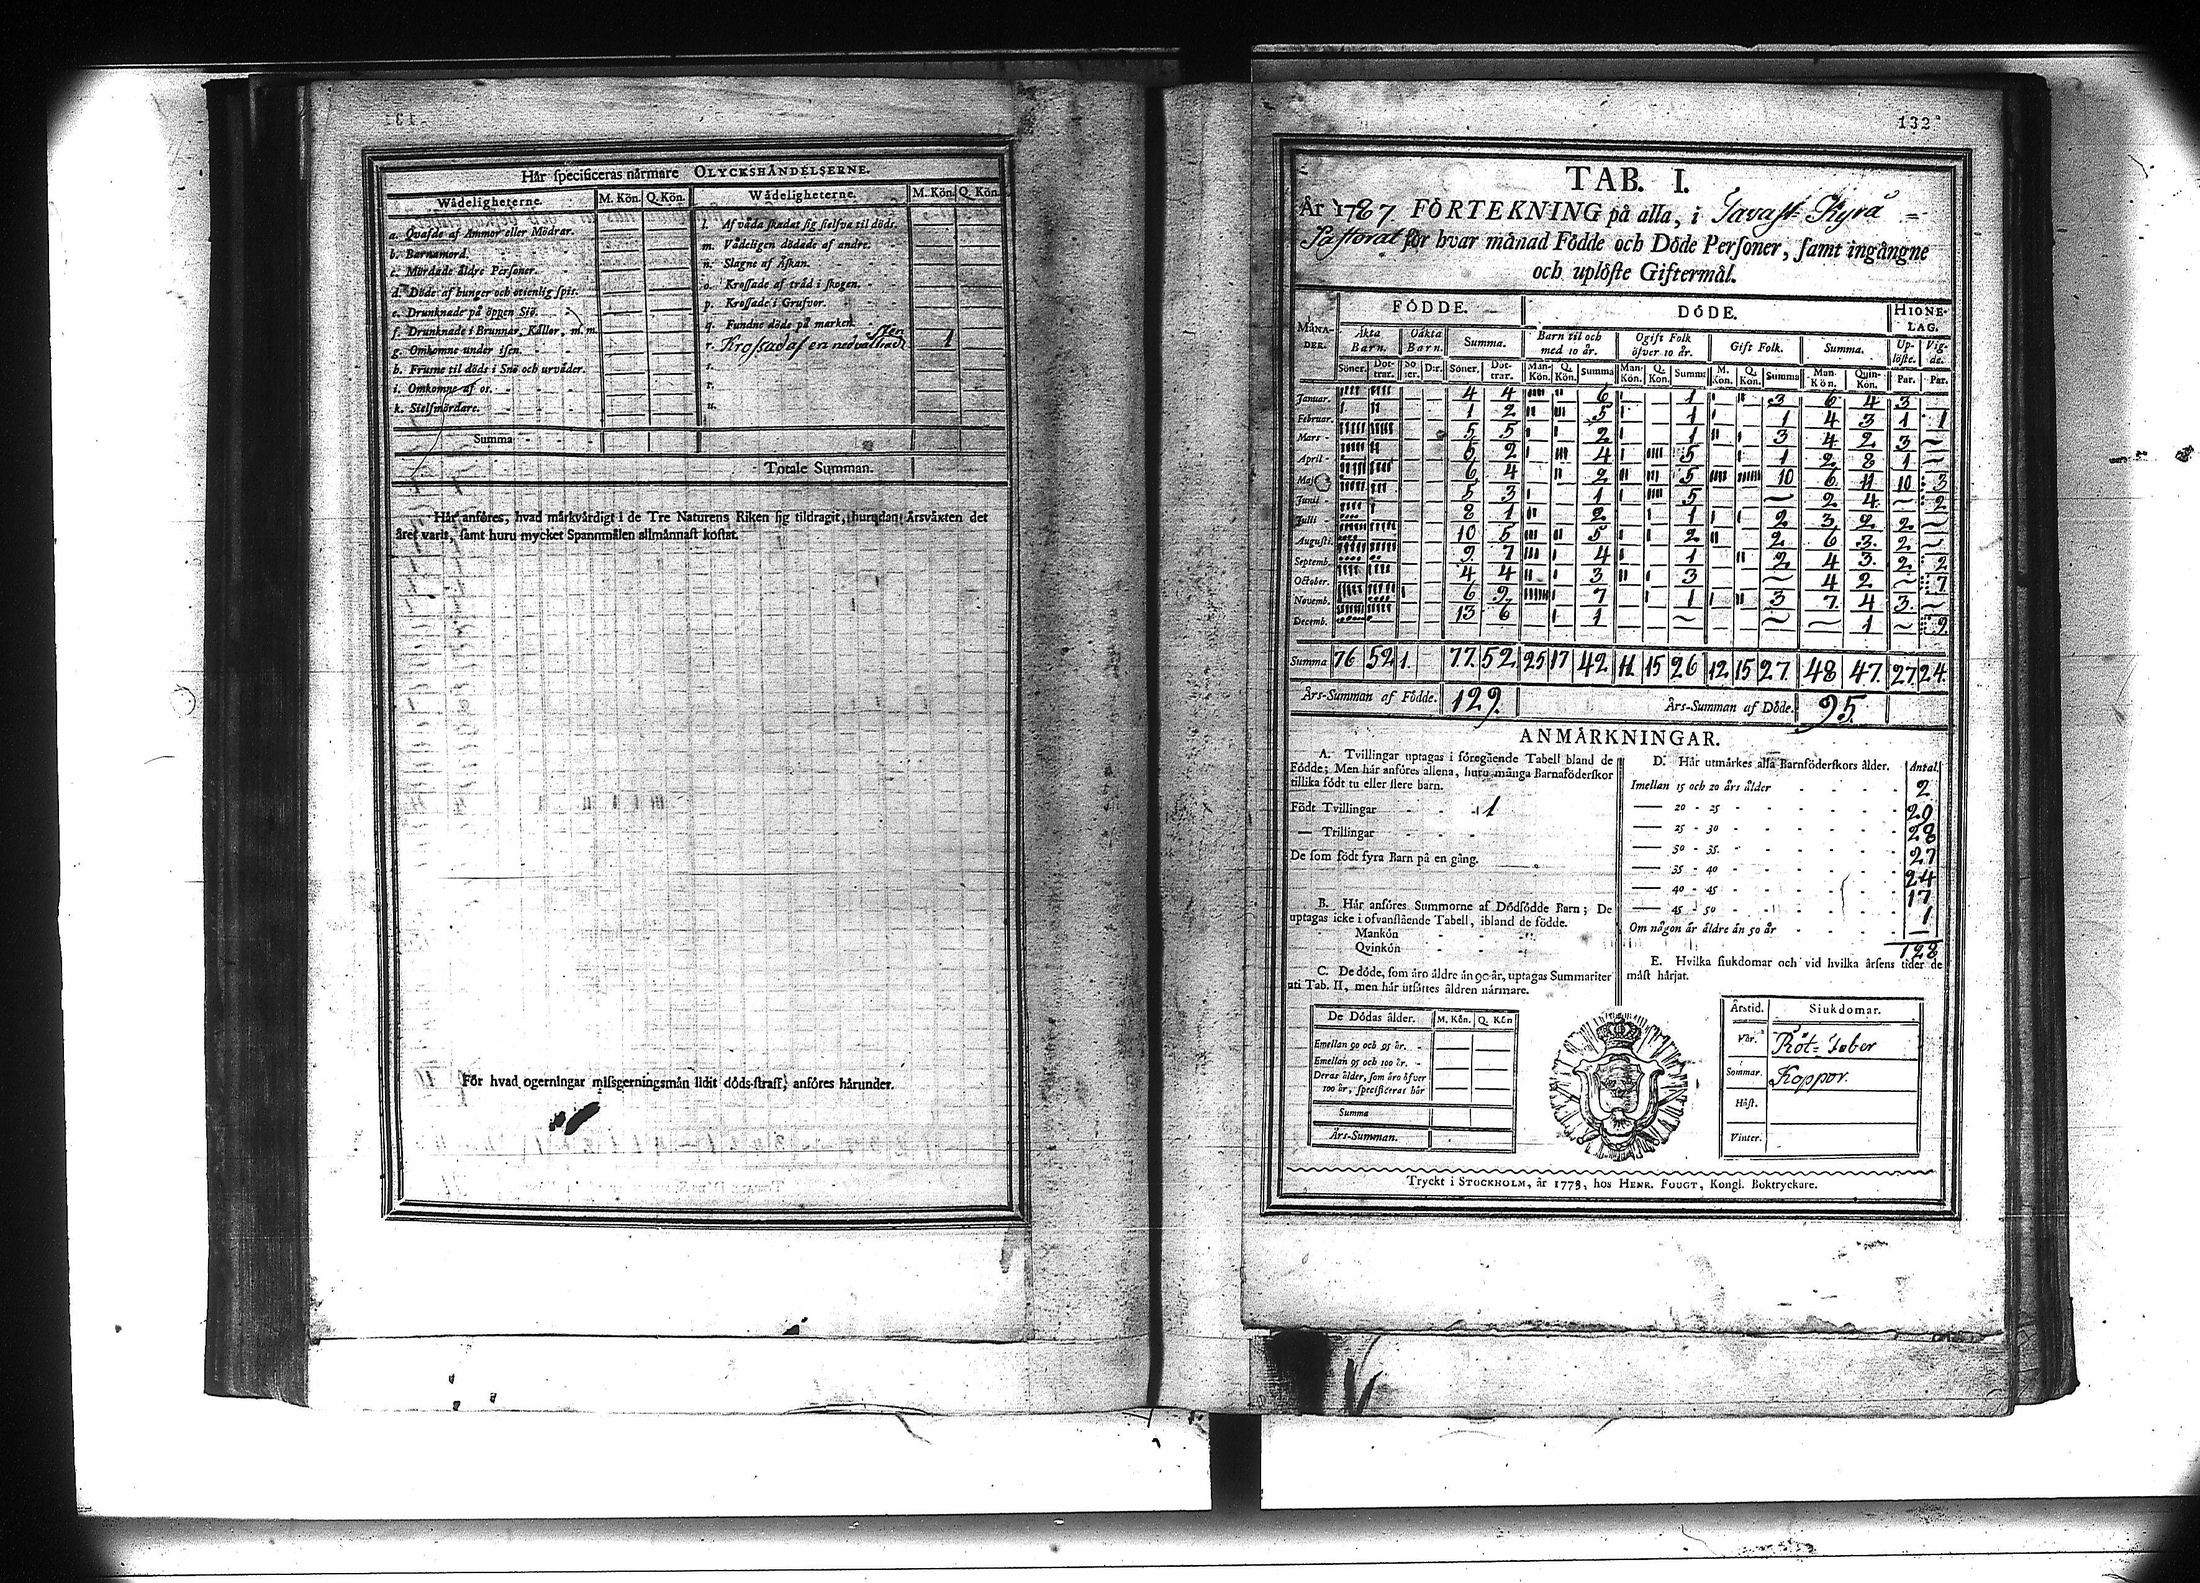 Här specificeras närmare OLYCKSHÄNDELSERNE.
Wådeligheterne. M. Kön. Q. Kön. Wådeligheterne. M. Kön. Q. Kön.
a. Qvafde af Ammor eller Mödrar. l. Af våda skadat sig sielfva til döds.
b. Barnamord. m. Vådeligen dödade af andre.
c. Mördade äldre Personer. n. Slagne af Åskan.
d. Döde af hunger och otienlig spis. o. Krossade af träd i skogen.
e. Drunknade på öppen Siö. p. Krossade i Grufvor.
f. Drunknade i Brunnar, Källor, m. m. q. Fundne döde på marken.
g. Omkomne under isen. r. Krossad af en nedvältrad sten 1
h. Frusne til döds i Snö och urväder. s.
i. Omkomne af os. t.
k. Sielfmördare. u.
Summa
Totale Summan.
Här anföres, hvad märkvärdigt i de Tre Naturens Riken sig tildragit, hurudan Årsväxten det
året varit, samt huru mycket Spannmålen allmännast kostat.
För hvad ogerningar missgerningsmän lidit döds-straff, anföres härunder.
132
TAB. I.
År 1787 FÖRTEKNING på alla, i Tavast Kyrå
Pastorat för hvar månad Födde och Döde Personer, samt ingångne
och uplöste Giftermål.
MÅNADER. FÖDDE. DÖDE. HIONELAG.
Äkta Barn. Oäkta Barn. Summa. Barn til och med 10 år. Ogift Folk öfver 10 år. Gift Folk. Summa. Uplöste. Vigde.
Söner. Dottrar. Söner. D:r. Söner. Dottrar. Man-Kön. Q. Kön. Summa Man-Kön. Q. Kön. Summa M. Kön. Q. Kön. Summa Man-Kön. Quin-Kön. Par. Par.
Januar. 4 4 6 1 3 6 4 3
Februar. 1 2 5 1 1 4 3 1 1
Mars 5 5 2 1 3 4 2 3
April 5 2 4 5 1 2 8 1
Maj 6 4 2 5 10 6 11 10 3
Junii 5 3 1 5 2 4 2
Julii 8 1 2 1 2 3 2 2
Augusti. 10 5 5 2 2 6 3 2
Septemb. 9 7 4 1 2 4 3 2 2
October. 4 4 3 3 4 2 7
Novemb. 6 9 7 1 3 7 4 3
Decemb. 13 6 1 1 9
Summa 76 52 1. 77 52 25 17 42 11 15 26 12 15 27 48 47 27 24
Års-Summan af Födde. 129. Års-Summan af Döde. 95.
ANMÄRKNINGAR.
A. Tvillingar uptagas i föregående Tabell bland de
Födde; Men här anföres allena, huru många Barnaföderskor
tillika födt tu eller flere barn.
Födt Tvillingar 1
— Trillingar
De som födt fyra Barn på en gång.
B. Här anföres Summorne af Dödfödde Barn; De
uptagas icke i ofvanstående Tabell, ibland de födde.
Mankön
Qvinkön
C. De döde, som äro äldre än 90 år, uptagas Summariter
uti Tab. II, men här utsättes åldren närmare.
De Dödas ålder. M. Kön. Q. Kön
Emellan 90 och 95 år.
Emellan 95 och 100 år.
Deras ålder, som äro öfver
100 år, specificeras här
Summa
Års-Summan.
D. Här utmärkes alla Barnföderskors ålder. Antal.
Imellan 15 och 20 års ålder 2
— 20 - 25 29
— 25 - 30 28
— 30 - 35 27
— 35 - 40 24
— 40 - 45 17
— 45 - 50 1
Om någon är äldre än 50 år —
128
E. Hvilka siukdomar och vid hvilka årsens tider de
mäst härjat.
Årstid. Siukdomar.
Vår. Röt-feber
Sommar. Koppor.
Höst.
Vinter.
Tryckt i STOCKHOLM, år 1773, hos HENR. FOUGT, Kongl. Boktryckare.